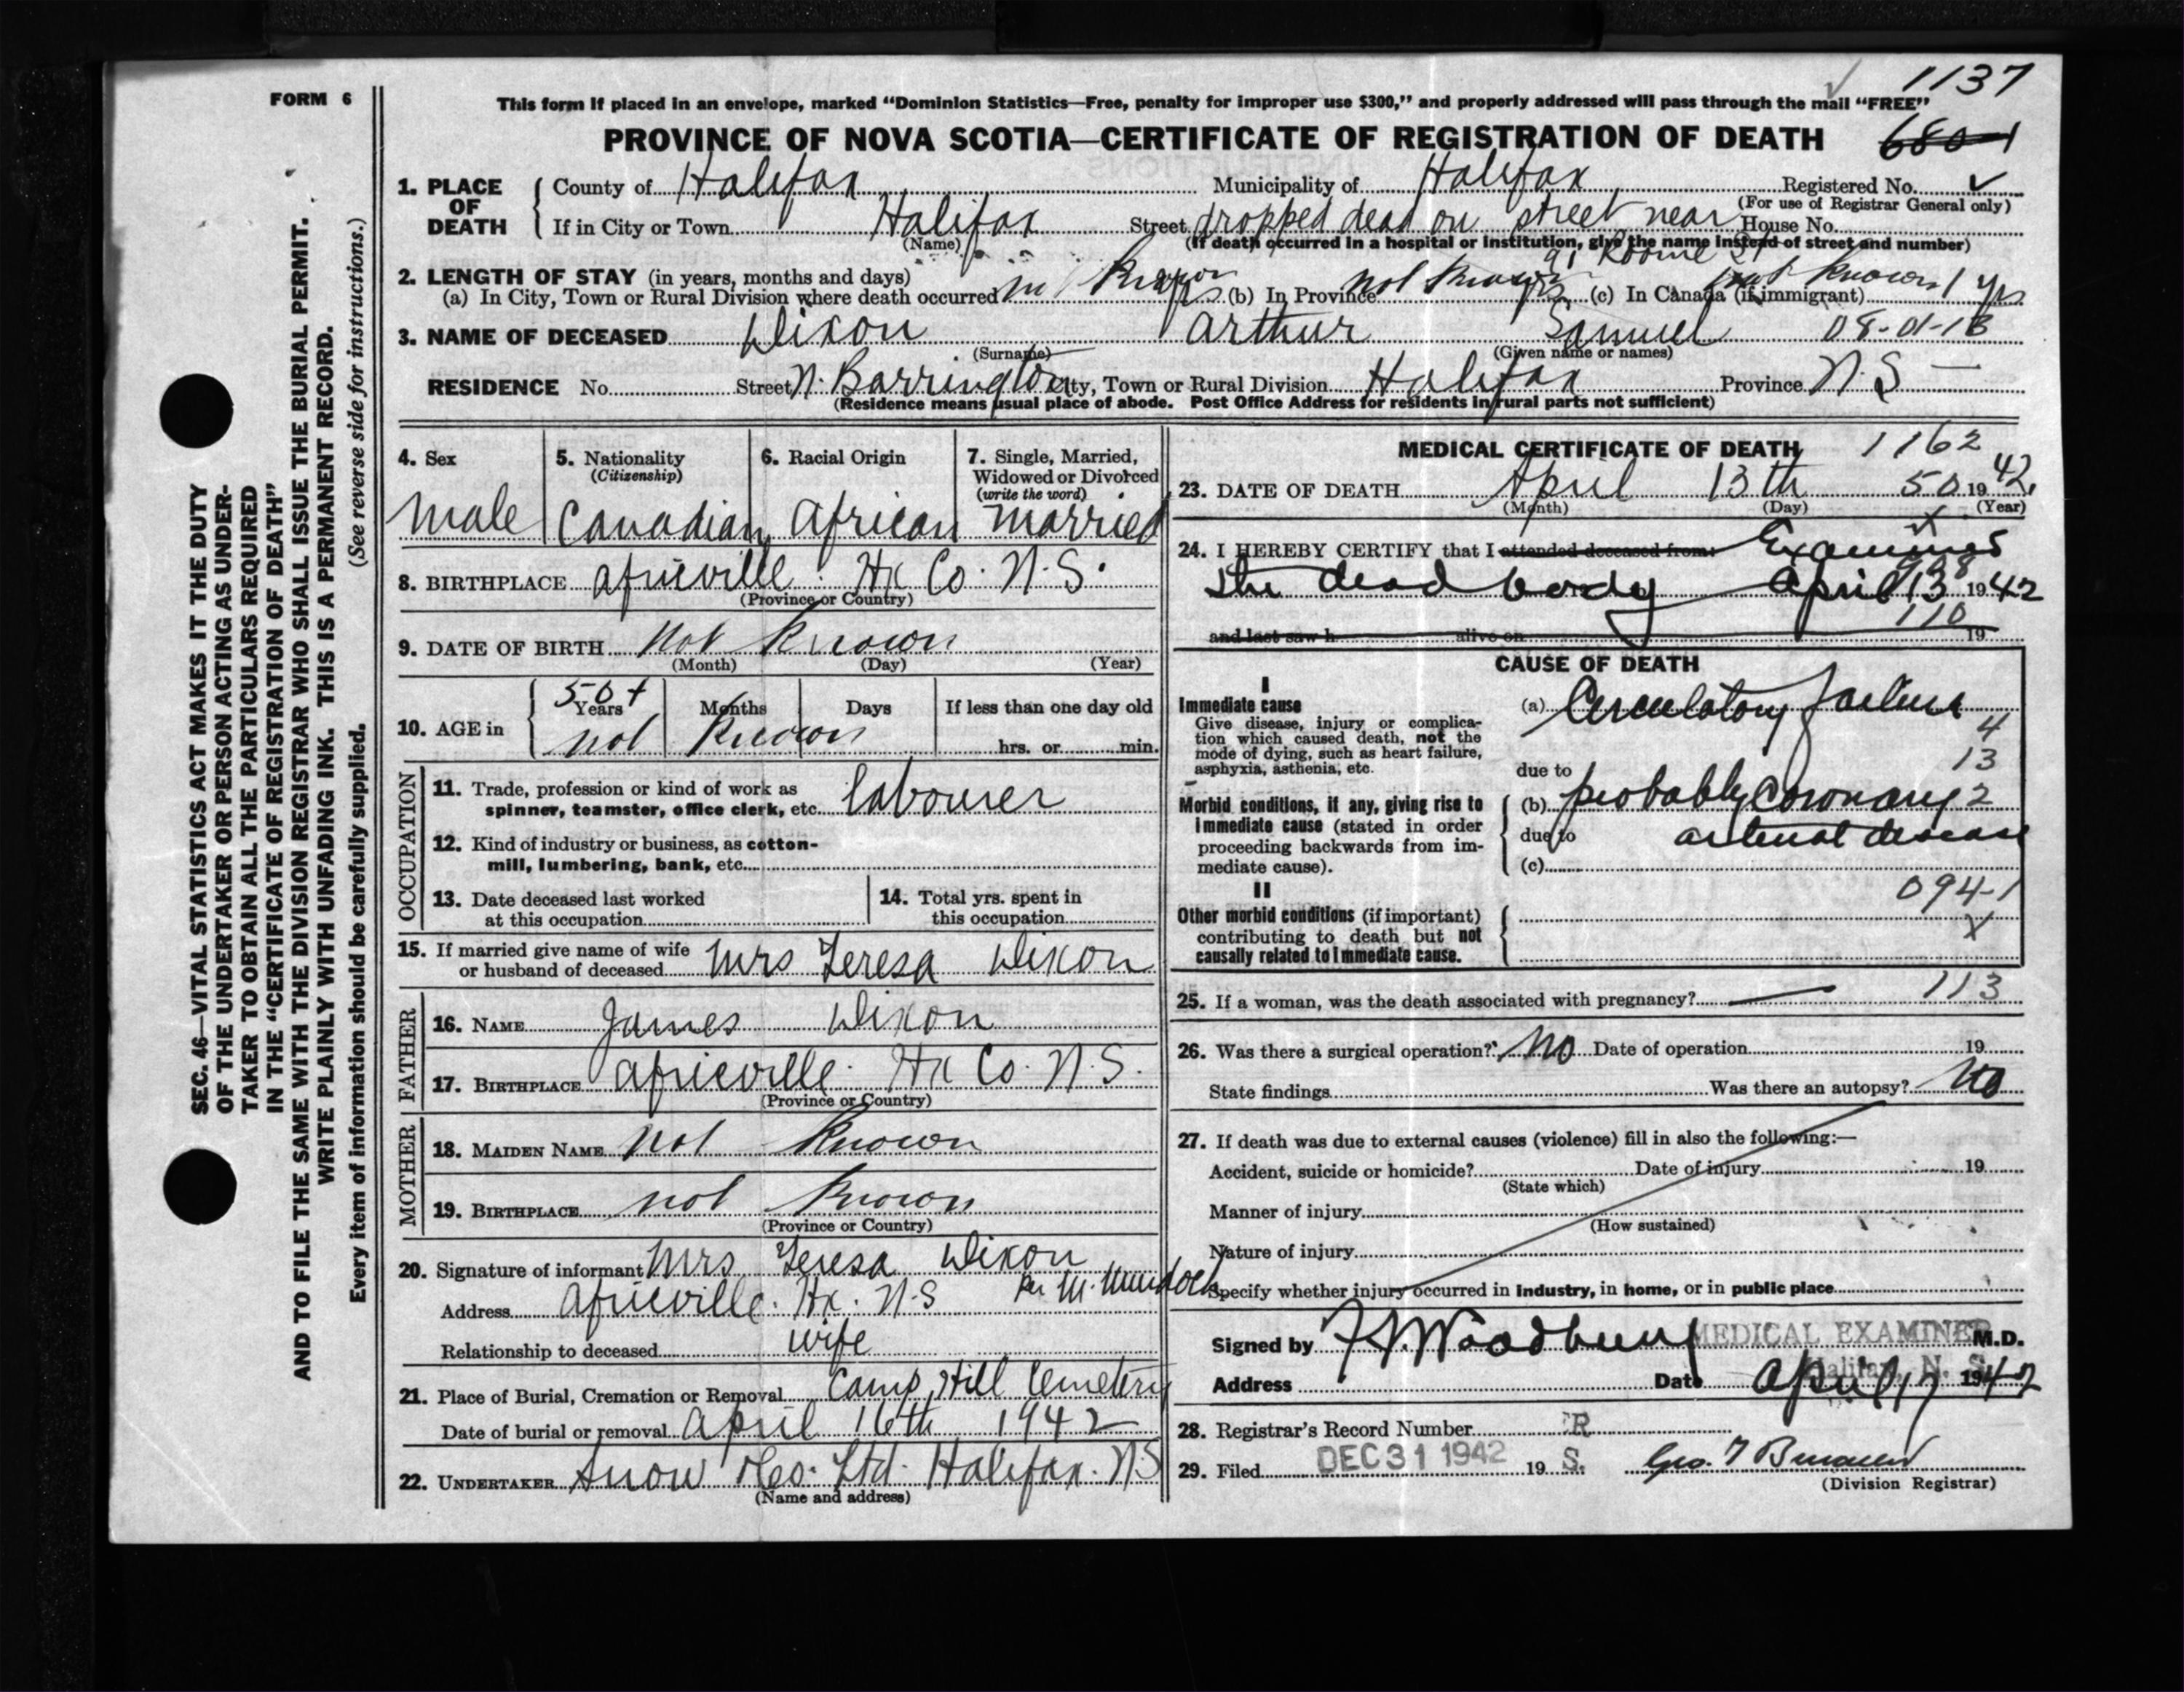 1137
FORM 6
This form if placed in an envelope, marked "Dominion Statistics—Free, penalty for improper use $300," and properly addressed will pass through the mail "FREE"
PROVINCE OF NOVA SCOTIA—CERTIFICATE OF REGISTRATION OF DEATH 6801
1. PLACE OF DEATH County of Halifax Municipality of Halifax Registered No.
(For use of Registrar General only)
If in City or Town Halifax Street dropped dead on street near House No.
(Name) (If death occurred in a hospital or institution, give the name instead of street and number)
91 Roome St
2. LENGTH OF STAY (in years, months and days)
(a) In City, Town or Rural Division where death occurred (b) In Province not known (c) In Canada (if immigrant) not known
3. NAME OF DECEASED Dixon Arthur Samuel 08-01-13
(Surname) (Given name or names)
RESIDENCE No. Street N. Barrington City, Town or Rural Division Halifax Province N.S
(Residence means usual place of abode. Post Office Address for residents in rural parts not sufficient)
4. Sex 5. Nationality (Citizenship) 6. Racial Origin 7. Single, Married, Widowed or Divorced (write the word)
Male Canadian African Married
8. BIRTHPLACE Africville. Hx Co. N.S.
(Province or Country)
9. DATE OF BIRTH Not Known
(Month) (Day) (Year)
10. AGE in 50+ Years Months Days If less than one day old
not Known hrs. or min.
OCCUPATION
11. Trade, profession or kind of work as spinner, teamster, office clerk, etc. labourer
12. Kind of industry or business, as cotton-mill, lumbering, bank, etc.
13. Date deceased last worked at this occupation
14. Total yrs. spent in this occupation
15. If married give name of wife or husband of deceased Mrs Teresa Dixon
FATHER
16. NAME James Dixon
17. BIRTHPLACE Africville. Hx Co. N.S.
(Province or Country)
MOTHER
18. MAIDEN NAME Not Known
19. BIRTHPLACE not Known
(Province or Country)
20. Signature of informant Mrs Teresa Dixon
per M. Murdoch
Address Africville. Hx. N.S
Relationship to deceased wife
21. Place of Burial, Cremation or Removal Camp Hill Cemetery
Date of burial or removal April 16th 1942
22. UNDERTAKER Snow & Co. Ltd. Halifax. N.S
(Name and address)
MEDICAL CERTIFICATE OF DEATH 1162
23. DATE OF DEATH April 13th 50 1942.
(Month) (Day) (Year)
24. I HEREBY CERTIFY that I attended deceased from: Examined
the dead body April 13 1942
110
and last saw h alive on 19
CAUSE OF DEATH
I
Immediate cause
Give disease, injury or complication which caused death, not the mode of dying, such as heart failure, asphyxia, asthenia, etc.
(a) Circulatory failure
4
13
due to
Morbid conditions, if any, giving rise to immediate cause (stated in order proceeding backwards from immediate cause).
(b) probably Coronary 2
due to arterial disease
(c)
II
094-1
Other morbid conditions (if important) contributing to death but not causally related to immediate cause.
X
25. If a woman, was the death associated with pregnancy? 113
26. Was there a surgical operation? No Date of operation 19
State findings Was there an autopsy? No
27. If death was due to external causes (violence) fill in also the following:—
Accident, suicide or homicide? Date of injury 19
(State which)
Manner of injury
(How sustained)
Nature of injury
Specify whether injury occurred in industry, in home, or in public place
Signed by MEDICAL EXAMINER M.D.
Halifax, N. S.
Address Date April 17 1942
28. Registrar's Record Number R
29. Filed DEC 31 1942 19 S.
(Division Registrar)
SEC. 46—VITAL STATISTICS ACT MAKES IT THE DUTY
OF THE UNDERTAKER OR PERSON ACTING AS UNDER-
TAKER TO OBTAIN ALL THE PARTICULARS REQUIRED
IN THE "CERTIFICATE OF REGISTRATION OF DEATH"
AND TO FILE THE SAME WITH THE DIVISION REGISTRAR WHO SHALL ISSUE THE BURIAL PERMIT.
WRITE PLAINLY WITH UNFADING INK. THIS IS A PERMANENT RECORD.
Every item of information should be carefully supplied. (See reverse side for instructions.)